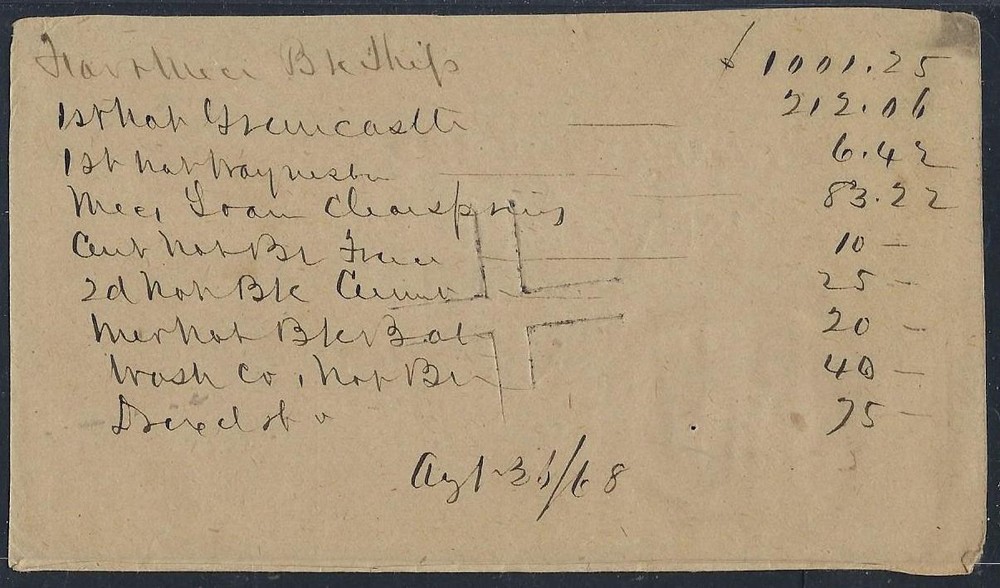 Far & Mec Bk Ship $ 1001.25
1st Nat Greencastle 212.06
1st Nat Waynesbr 6.42
Mec, Loan Clearspring 83.22
Cent Nat Bk Fred 10 -
2d Nat Bk Cumb 25 -
Mer Nat Bk Bal 20 -
Wash Co, Nat Bk 40 -
Drexel & Co 75 -
Agt 31/68